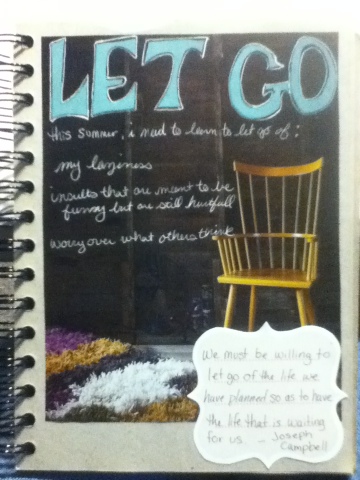 LET GO
this summer, i need to learn to let go of:
my laziness
insults that are meant to be
funny but are still hurtfull
worry over what others think
We must be willing to
let go of the life we
have planned so as to have
the life that is waiting
for us. - Joseph
Campbell